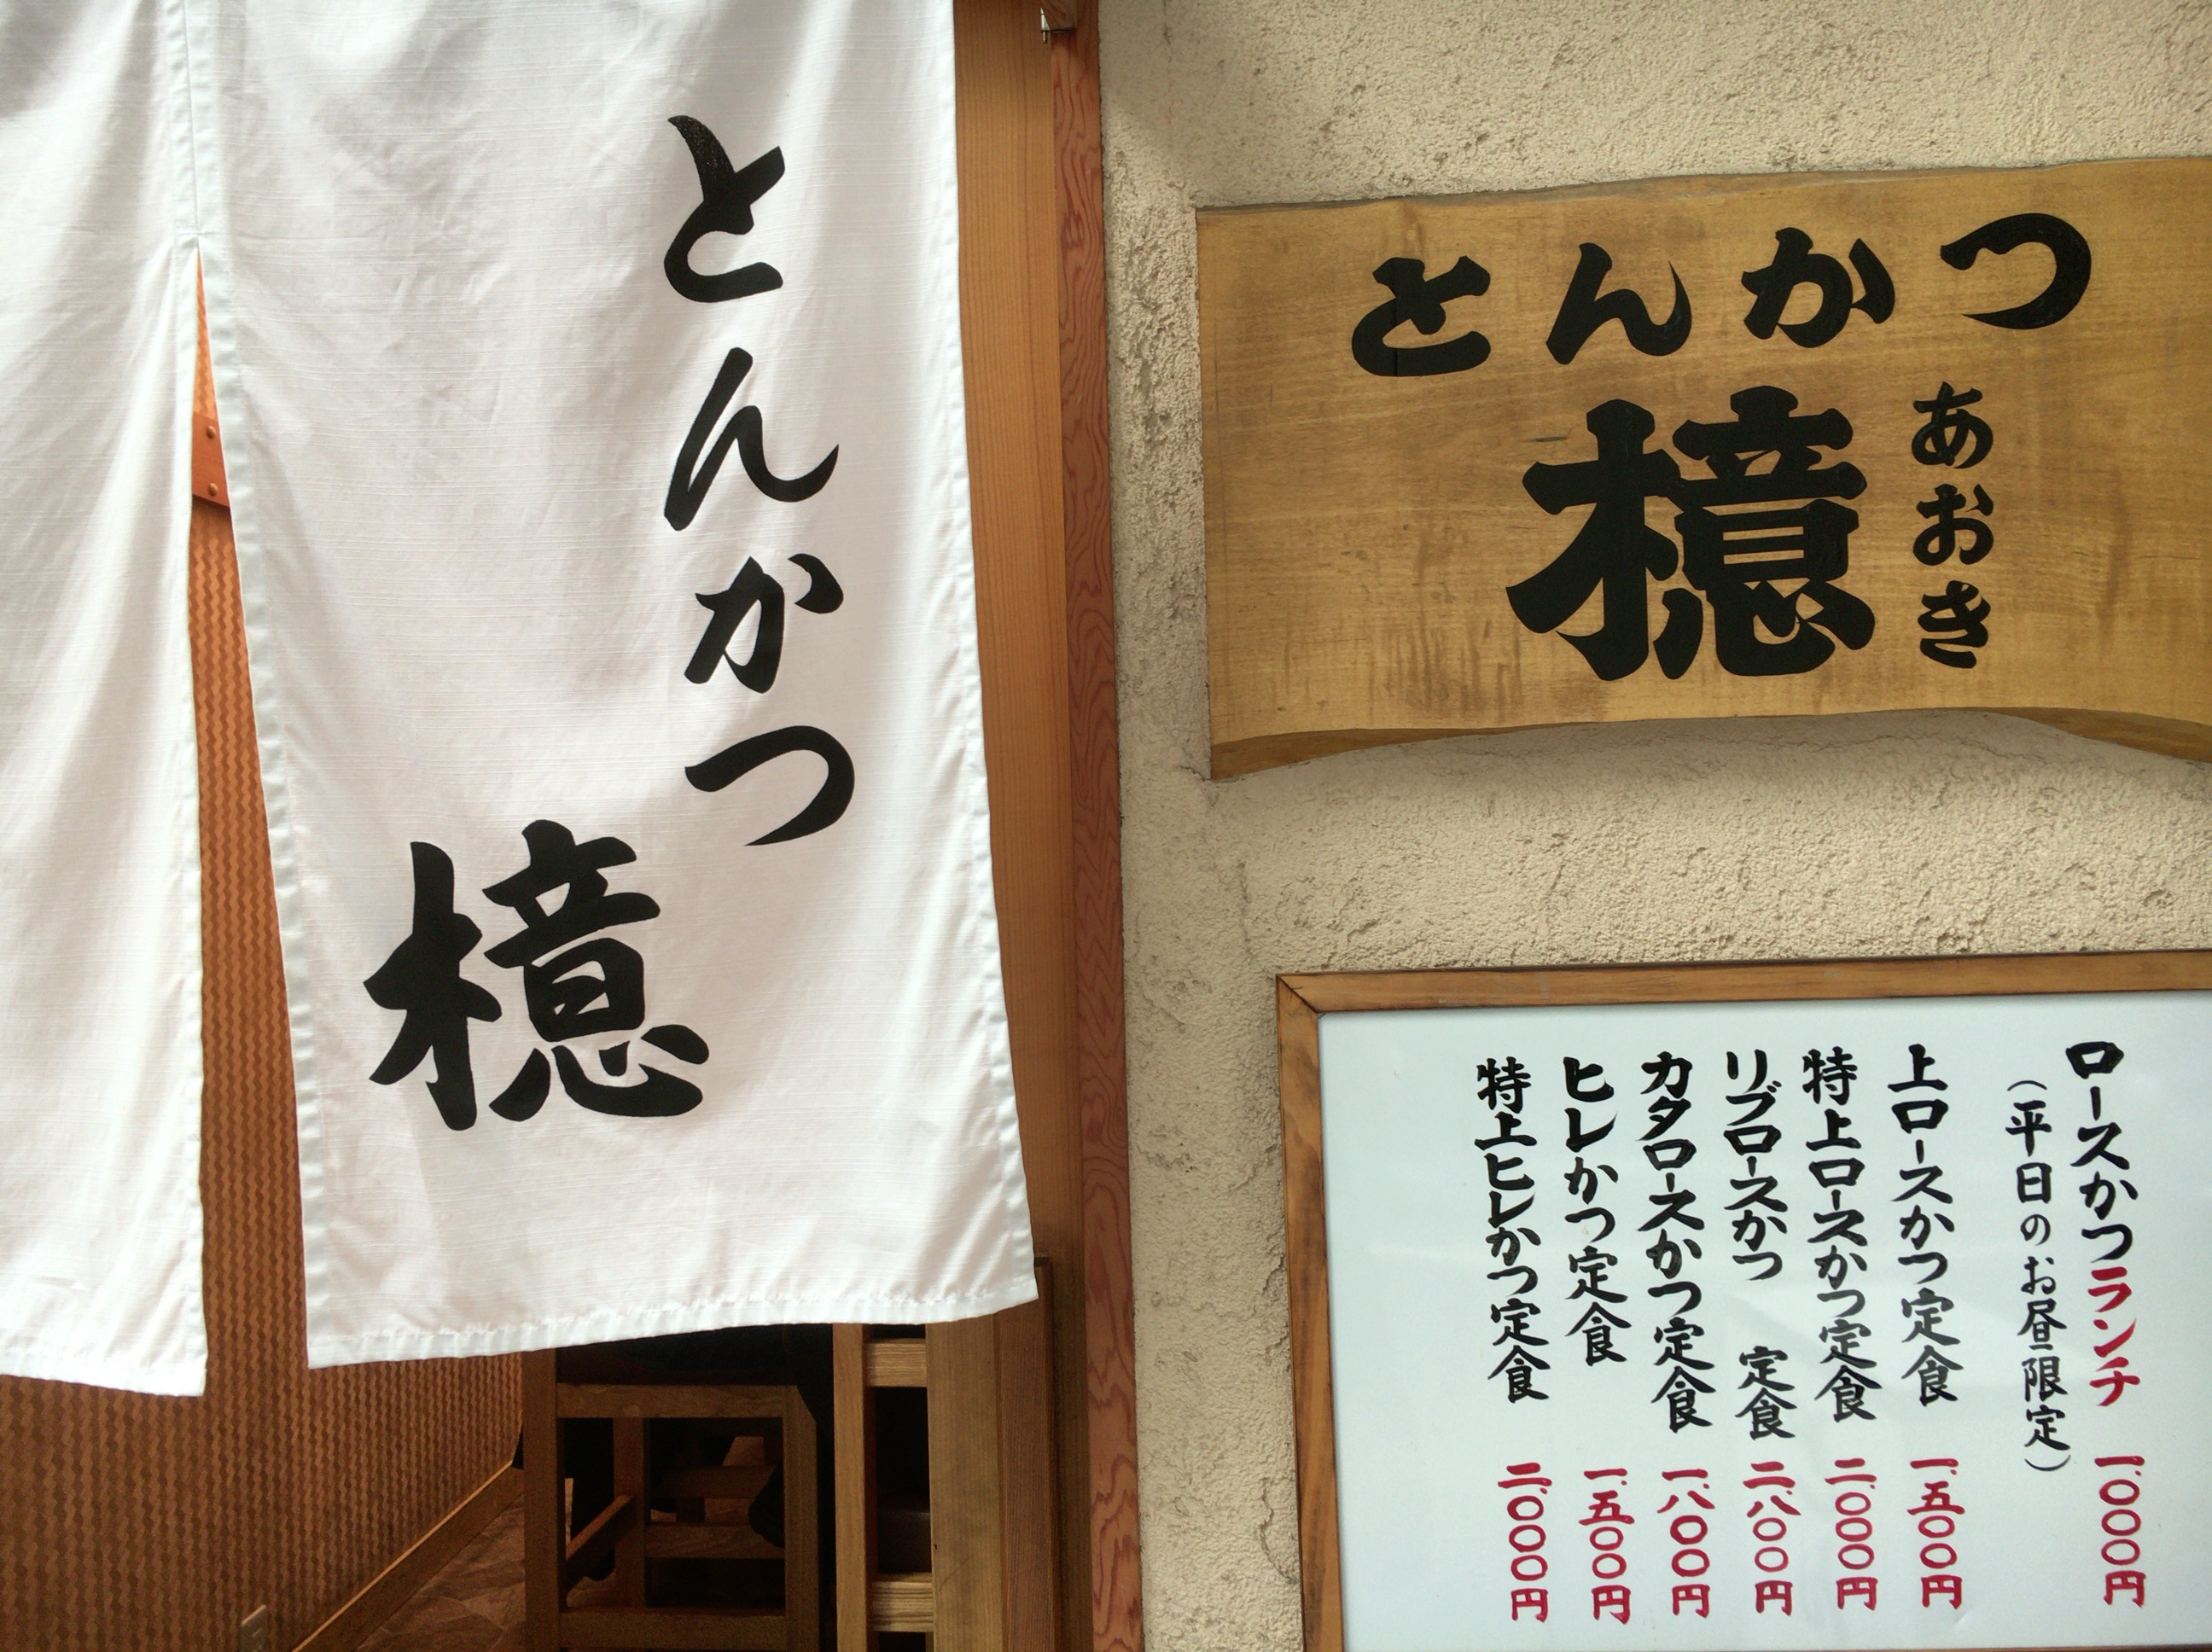 とんかつ
檍
とんかつ
檍
あおき
ロースかつランチ 一、〇〇〇円
（平日のお昼限定）
上ロースかつ定食 一、五〇〇円
特上ロースかつ定食 二、〇〇〇円
リブロースかつ 定食 二、八〇〇円
カタロースかつ定食 一、八〇〇円
ヒレかつ定食 一、五〇〇円
特上ヒレかつ定食 二、〇〇〇円